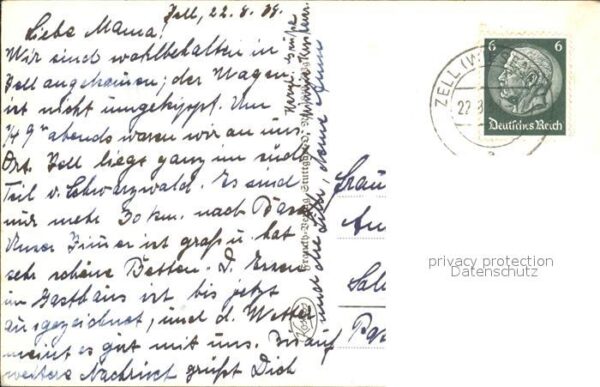 Zell, 22.8.39.
Liebe Mama!
Wir sind wohlbehalten in
Zell angekommen; der Wagen
ist nicht umgekippt. Um
1/4 9h abends waren wir an uns.
Ort. Zell liegt ganz im südl.
Teil v. Schwarzwald. Es sind
nur mehr 30 km. nach Basel.
Unser Zimmer ist groß u. hat
sehr schöne Betten. D. Essen
im Gasthaus ist bis jetzt
ausgezeichnet, und d. Wetter
meint es gut mit uns. Bis auf
weitere Nachricht grüßt Dich
und die Lilli, deine
Frau
Sal
6 6
Deutsches Reich
ZELL (W
22.8
privacy protection
Datenschutz